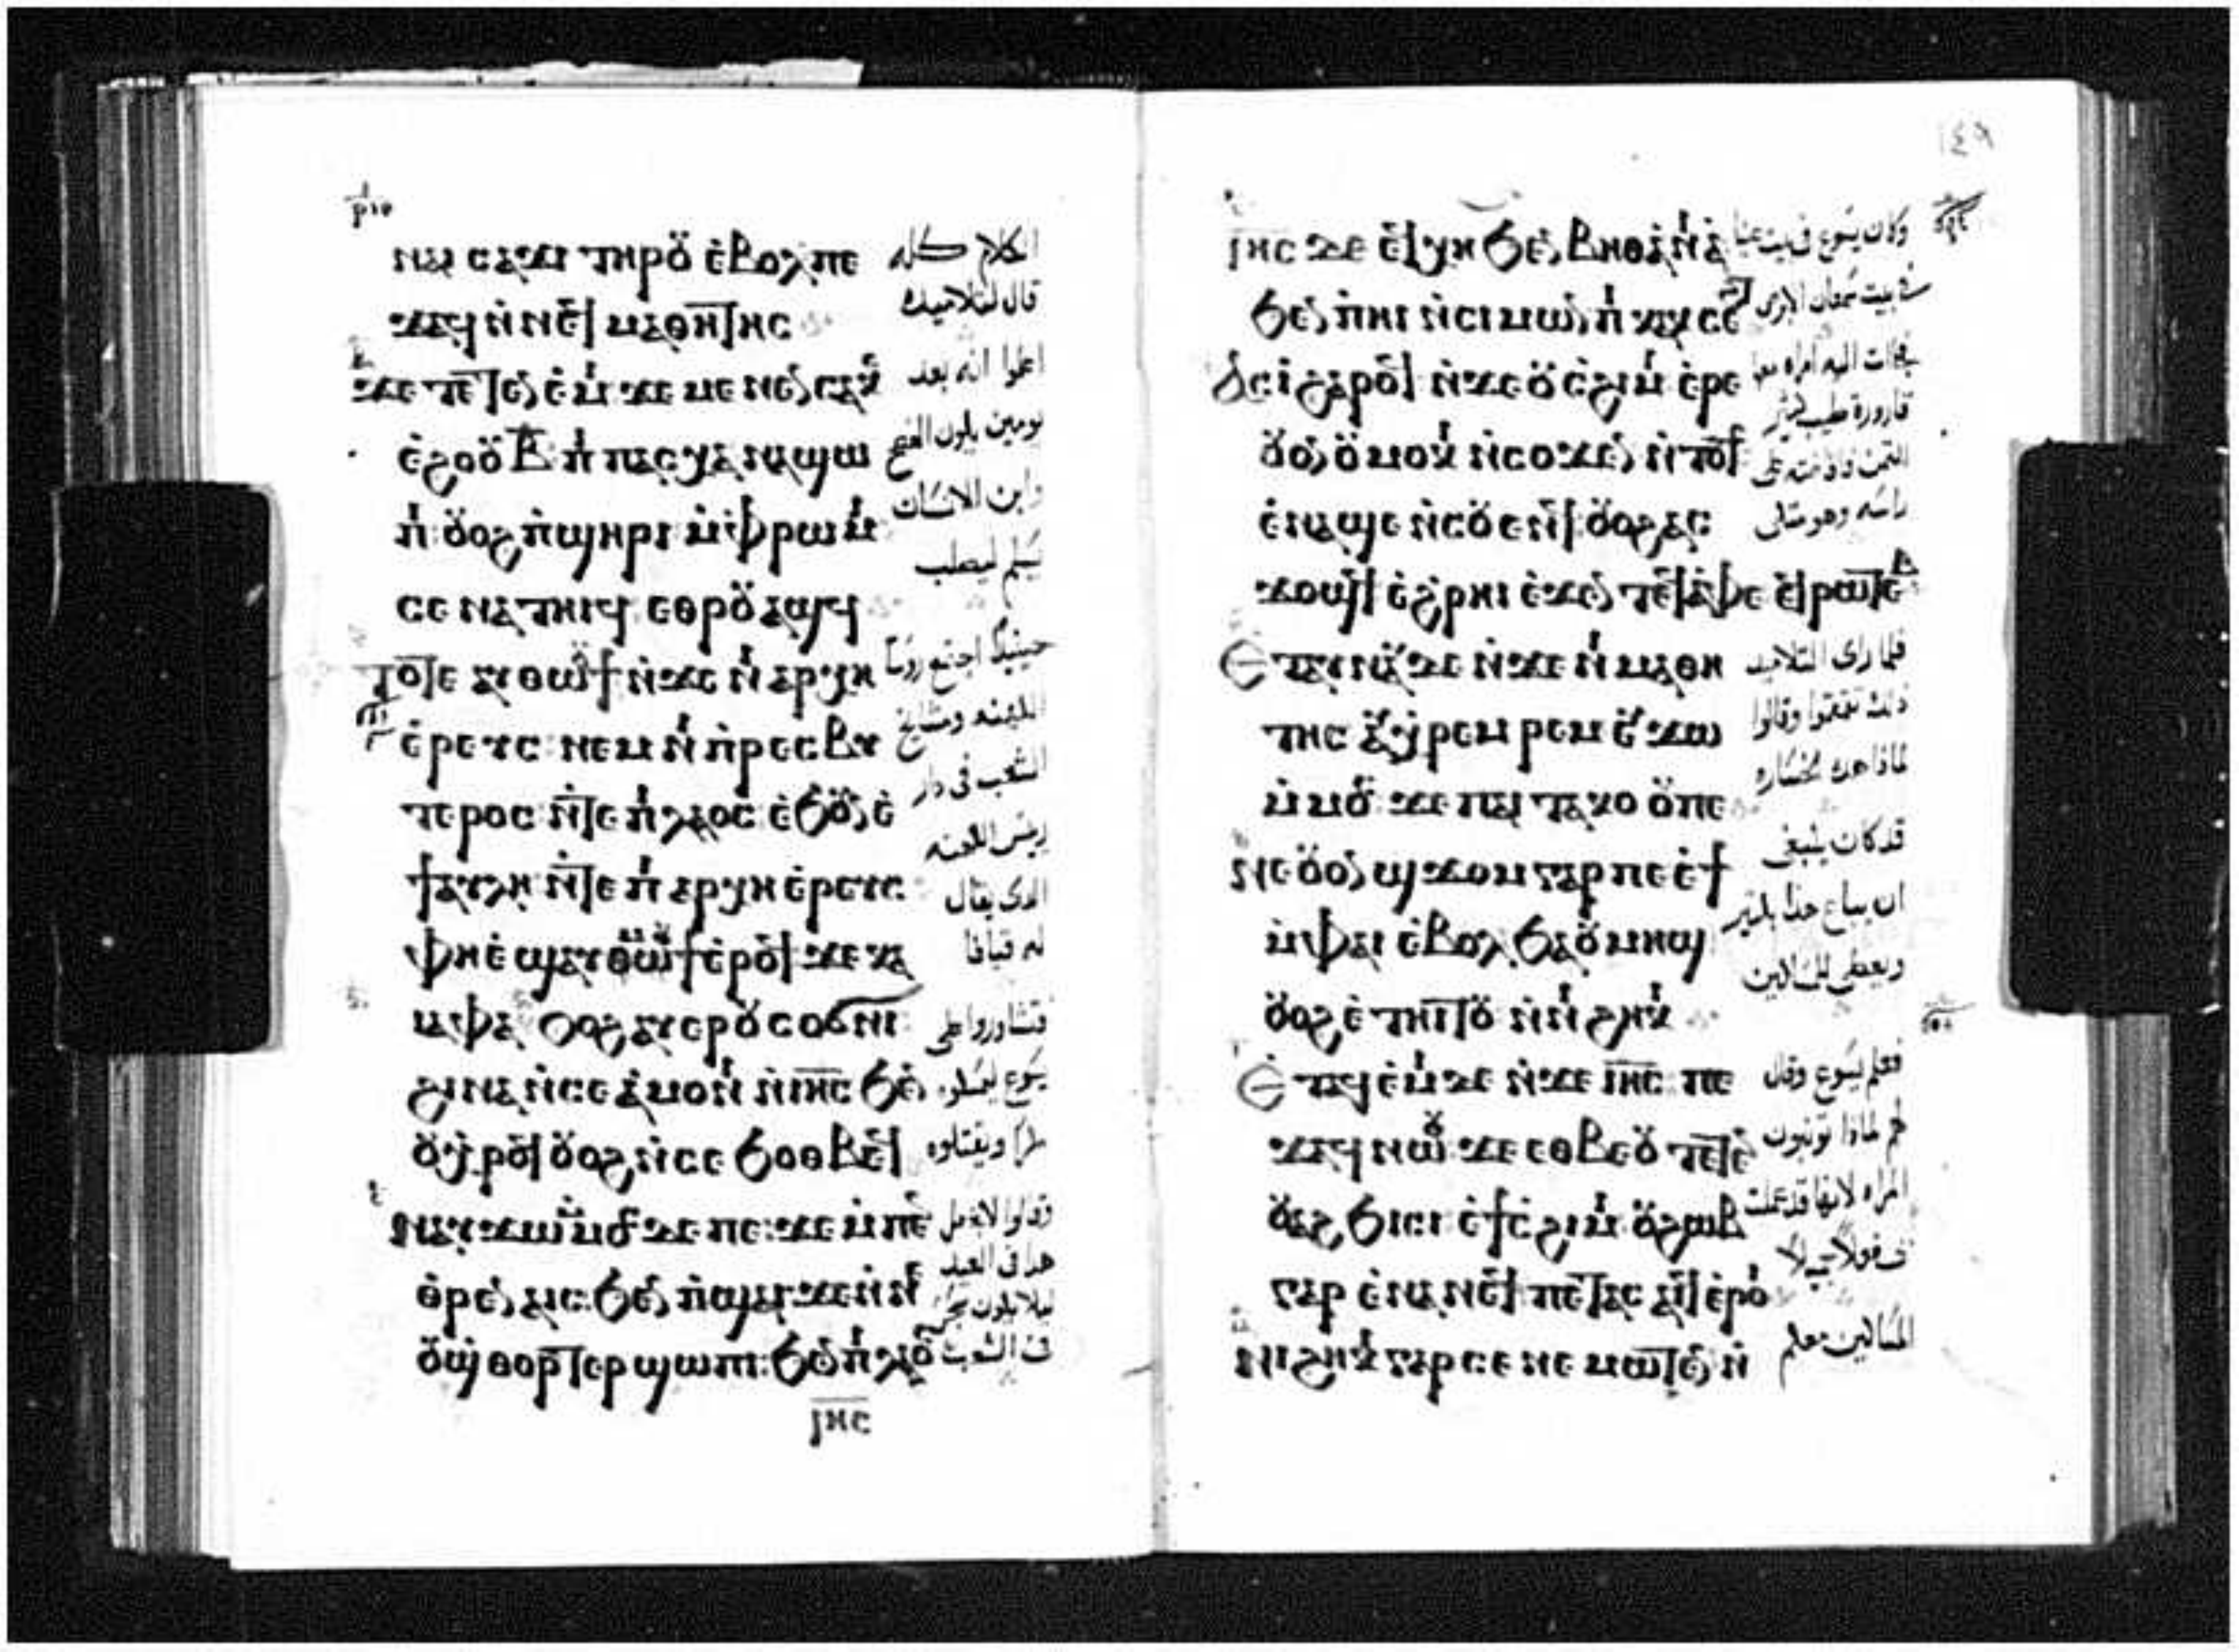 ⲛⲁⲓ ⲥⲁϫⲓ ⲧⲏⲣⲟⲩ ⲉ̀ⲃⲟⲗ ⲡⲉ
ϫⲁϥ ⲛ̀ⲛⲉϥ ⲙⲁⲑⲏⲧⲏⲥ
ϫⲉ ⲧⲉⲧⲉⲛ ⲉ̀ⲙⲓ ϫⲉ ⲙⲉⲛⲉⲛⲥⲁ ⲕⲉ
ⲉ̀ϩⲟⲟⲩ ⲃ̅ ⲡⲓ ⲡⲁⲥⲭⲁ ⲛⲁϣⲱ
ⲡⲓ ⲟⲩⲟϩ ⲡ̀ϣⲏⲣⲓ ⲙ̀ⲫⲣⲱⲙⲓ
ⲥⲉ ⲛⲁⲧⲏⲓϥ ⲉⲑⲣⲟⲩⲁϣϥ
ⲧⲟⲧⲉ ⲁⲩⲑⲱⲟⲩϯ ⲛ̀ϫⲉ ⲛⲓ ⲁⲣⲭⲏ
ⲉ̀ⲣⲉⲩⲥ ⲛⲉⲙ ⲛⲓ ⲡ̀ⲣⲉⲥⲃⲩ
ⲧⲉⲣⲟⲥ ⲛ̀ⲧⲉ ⲡⲓ ⲗⲁⲟⲥ ⲉ̀ϧⲟⲩⲛ ⲉ̀
ϯⲁⲩⲗⲏ ⲛ̀ⲧⲉ ⲡⲓ ⲁⲣⲭⲏ ⲉ̀ⲣⲉⲩⲥ
ⲫⲏ ⲉ̀ϣⲁⲩⲙⲟⲩϯ ⲉ̀ⲣⲟϥ ϫⲉ ⲕⲁ
ⲓⲁⲫⲁ ⲟⲩⲟϩ ⲁⲩⲉⲣⲟⲩⲥⲟϭⲛⲓ
ϩⲓⲛⲁ ⲛ̀ⲥⲉ ⲁ̀ⲙⲟⲛⲓ ⲛ̀ⲓⲏ̅ⲥ̅ ϧⲉⲛ
ⲟⲩⲭ̀ⲣⲟϥ ⲟⲩⲟϩ ⲛ̀ⲥⲉ ϧⲟⲑⲃⲉϥ
ⲛⲁⲩϫⲱ ⲙ̀ⲙⲟⲥ ϫⲉ ⲡⲉ ϫⲉ ⲙ̀ⲡⲉⲛ
ⲑⲣⲉⲛ ⲁⲓⲥ ϧⲉⲛ ⲡ̀ϣⲁⲓ ϫⲉ ⲛ̀ⲛⲉ
ⲟⲩϣ̀ⲑⲟⲣⲧⲉⲣ ϣⲱⲡⲓ ϧⲉⲛ ⲡⲓ ⲗⲁⲟⲥ
ⲓⲏ̅ⲥ̅
الكلام كله
قال لتلاميده
اعلموا انه بعد
يومين يكون الفصح
وابن الانسان
يسلم ليصلب
حينيذ اجتمع روسا
الكهنه ومشايخ
الشعب في دار
رييس الكهنه
الدى يقال
له قيافا
فتشاوروا على
يسوع ليمسكوه
مكرا ويقتلوه
وقالوا لا نفعل
هدا في العيد
ليلا يكون سجس
في الشعب
١٤٩
ⲓⲏⲥ ⲇⲉ ⲉϥⲭⲏ ϧⲉⲛ ⲃⲏⲑⲁⲛⲓⲁ
ϧⲉⲛ ⲡ̀ⲏⲓ ⲛ̀ⲥⲓⲙⲱⲛ ⲡⲓ ⲕⲁⲕⲥⲉϩⲧ
ⲁⲥⲓ̀ ϩⲁⲣⲟϥ ⲛ̀ϫⲉ ⲟⲩⲥϩⲓⲙⲓ ⲉ̀ⲣⲉ
ⲟⲩⲟⲛ ⲟⲩⲙⲟⲕⲓ ⲛ̀ⲥⲟϫⲉⲛ ⲛ̀ⲧⲟⲧⲥ
ⲉ̀ⲛⲁϣⲉ ⲛ̀ⲥⲟⲩⲉⲛϥ ⲟⲩⲟϩ ⲁⲥ
ϫⲟϣϥ ⲉ̀ϩ̀ⲣⲏⲓ ⲉ̀ϫⲉⲛ ⲧⲉϥⲁ̀ⲫⲉ ⲉϥⲣⲱⲧⲉⲃ
ⲉⲧⲁⲩⲛⲁⲩ ⲇⲉ ⲛ̀ϫⲉ ⲛⲓ ⲙⲁⲑⲏ
ⲧⲏⲥ ⲁⲩⲭ̀ⲣⲉⲙⲣⲉⲙ ⲉⲩϫⲱ
ⲙ̀ⲙⲟⲥ ϫⲉ ⲡⲁⲓ ⲧⲁⲕⲟ ⲟⲩ ⲡⲉ
ⲛⲉ ⲟⲩⲟⲛ ϣϫⲟⲙ ⲅⲁⲣ ⲡⲉ ⲉ̀ϯ
ⲙ̀ⲫⲁⲓ ⲉ̀ⲃⲟⲗ ϧⲁ ⲟⲩⲙⲏϣ
ⲟⲩⲟϩ ⲉ̀ ⲧⲏⲓⲧⲟⲩ ⲛ̀ⲛⲓ ϩⲏⲕⲓ
ⲉⲧⲁϥⲉ̀ⲙⲓ ⲇⲉ ⲛ̀ϫⲉ ⲓⲏ̅ⲥ̅ ⲡⲉ
ϫⲁϥ ⲛⲱⲟⲩ ϫⲉ ⲉⲑⲃⲉⲟⲩ ⲧⲉⲧⲉⲛ
ⲟⲩⲁϩ ϧⲓⲥⲓ ⲉ̀ϯⲥ̀ϩⲓⲙⲓ ⲟⲩϩⲱⲃ
ⲅⲁⲣ ⲉ̀ⲛⲁⲛⲉϥ ⲡⲉⲧⲁⲥ ⲁⲓϥ ⲉ̀ⲣⲟⲓ
ⲛⲓ ϩⲏⲕⲓ ⲅⲁⲣ ⲥⲉ ⲛⲉⲙⲱⲧⲉⲛ ⲛ̀
وكان يسوع في بيت عنيا
في بيت سمعان الابرص
فجات اليه امراه معها
قارورة طيب كثير
الثمن وافاضته على
راسه وهو متكى
فلما راى التلاميد
ذلك تقمقموا وقالوا
لماذا هده الخساره
قد كان ينبغي
ان يباع هذا بكثير
ويعطى للمساكين
فعلم يسوع وقال
لهم لماذا تونبون
المراه لانها قد عملت
المساكين معكم